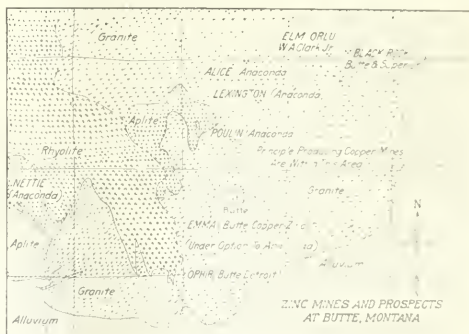 Granite
ELM ORLU
W.A. Clark Jr.
BLACK ROCK
Butte & Superior
ALICE (Anaconda)
LEXINGTON (Anaconda)
Aplite
POULIN (Anaconda)
Rhyolite
Principle Producing Copper Mines
Are Within This Area
NETTIE
(Anaconda)
Granite
N
Butte
EMMA (Butte Copper & Zinc
(Under Option To Anaconda)
Aplite
Alluvium
OPHIR (Butte Detroit)
Granite
Alluvium
ZINC MINES AND PROSPECTS
AT BUTTE, MONTANA